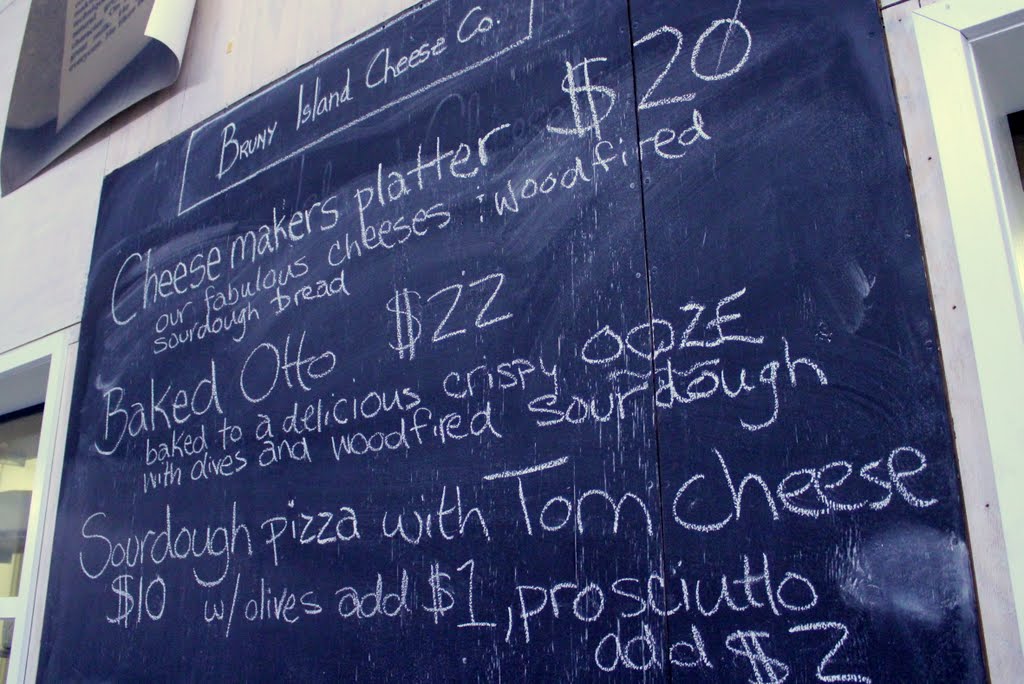 BRUNY ISLAND CHEESE CO.
Cheesemakers platter $20
our fabulous cheeses : woodfired
sourdough bread
Baked Otto $22
baked to a delicious crispy OOZE
with olives and woodfired sourdough
Sourdough pizza with Tom Cheese
$10 w/olives add $1, prosciutto
add $2